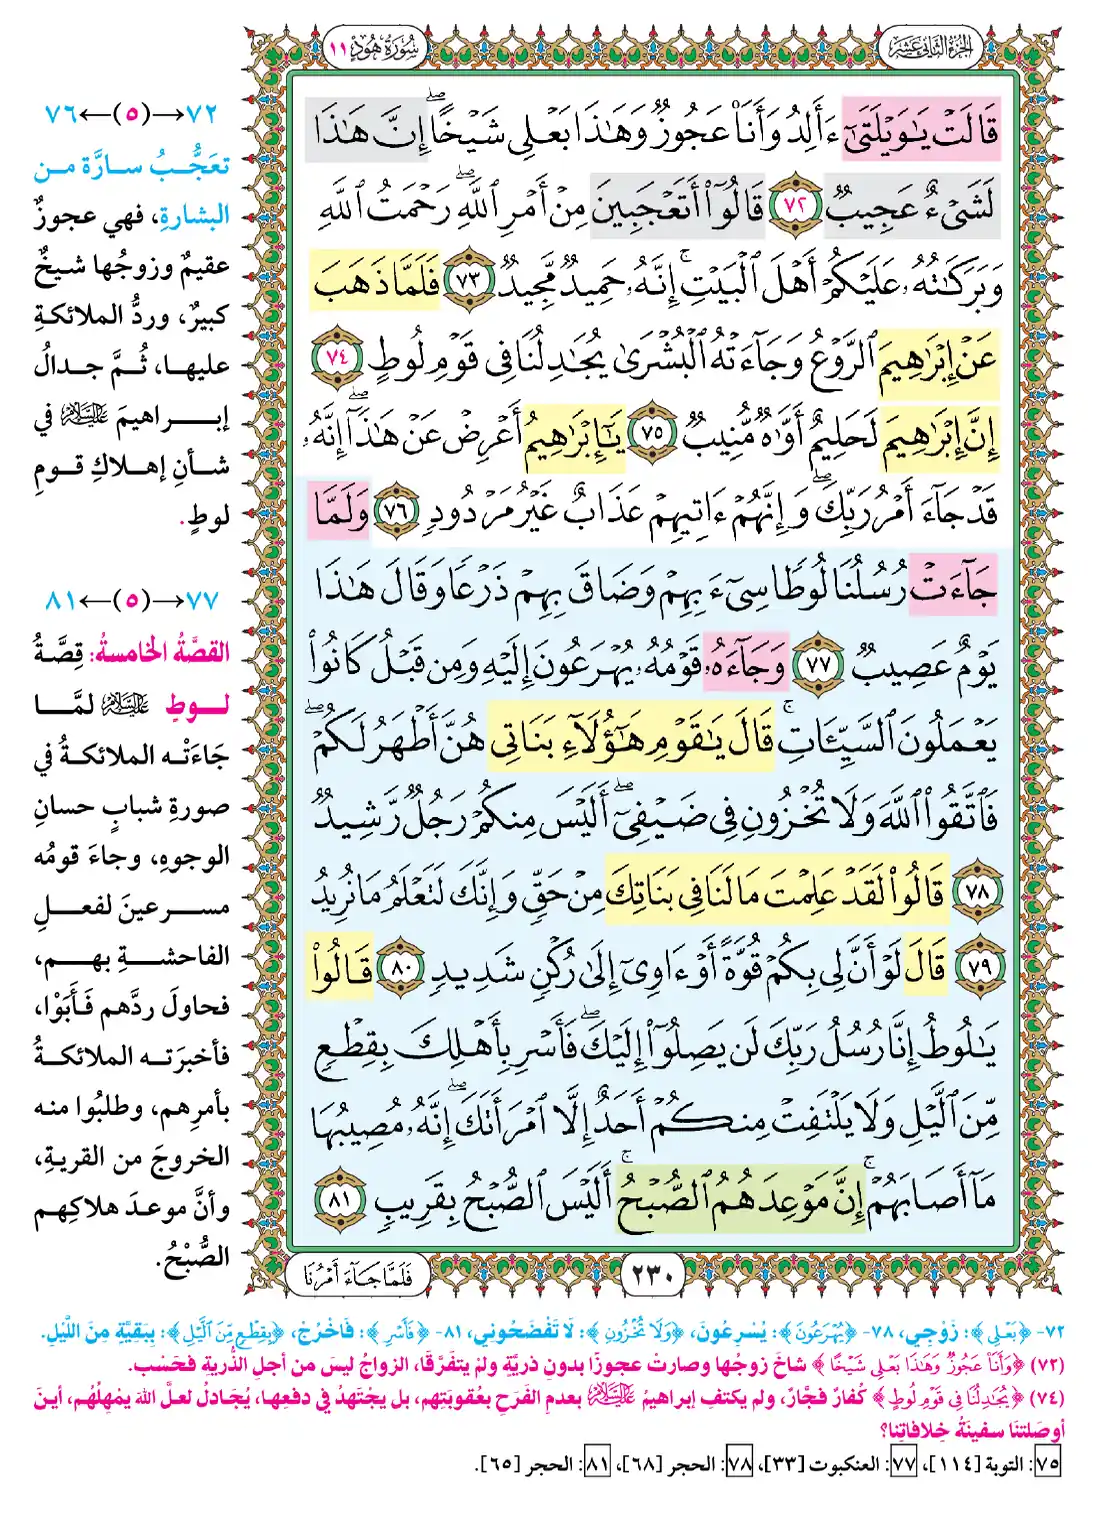 الجزء الثاني عشر
سورة هود ١١
قَالَتْ يَٰوَيْلَتَىٰٓ ءَأَلِدُ وَأَنَا۠ عَجُوزٌ وَهَٰذَا بَعْلِى شَيْخًا ۖ إِنَّ هَٰذَا
لَشَىْءٌ عَجِيبٌ ٧٢ قَالُوٓا۟ أَتَعْجَبِينَ مِنْ أَمْرِ ٱللَّهِ ۖ رَحْمَتُ ٱللَّهِ
وَبَرَكَٰتُهُۥ عَلَيْكُمْ أَهْلَ ٱلْبَيْتِ ۚ إِنَّهُۥ حَمِيدٌ مَّجِيدٌ ٧٣ فَلَمَّا ذَهَبَ
عَنْ إِبْرَٰهِيمَ ٱلرَّوْعُ وَجَآءَتْهُ ٱلْبُشْرَىٰ يُجَٰدِلُنَا فِى قَوْمِ لُوطٍ ٧٤
إِنَّ إِبْرَٰهِيمَ لَحَلِيمٌ أَوَّٰهٌ مُّنِيبٌ ٧٥ يَٰٓإِبْرَٰهِيمُ أَعْرِضْ عَنْ هَٰذَآ ۖ إِنَّهُۥ
قَدْ جَآءَ أَمْرُ رَبِّكَ ۖ وَإِنَّهُمْ ءَاتِيهِمْ عَذَابٌ غَيْرُ مَرْدُودٍ ٧٦ وَلَمَّا
جَآءَتْ رُسُلُنَا لُوطًا سِىٓءَ بِهِمْ وَضَاقَ بِهِمْ ذَرْعًا وَقَالَ هَٰذَا
يَوْمٌ عَصِيبٌ ٧٧ وَجَآءَهُۥ قَوْمُهُۥ يُهْرَعُونَ إِلَيْهِ وَمِن قَبْلُ كَانُوا۟
يَعْمَلُونَ ٱلسَّيِّـَٔاتِ ۚ قَالَ يَٰقَوْمِ هَٰٓؤُلَآءِ بَنَاتِى هُنَّ أَطْهَرُ لَكُمْ ۖ
فَٱتَّقُوا۟ ٱللَّهَ وَلَا تُخْزُونِ فِى ضَيْفِىٓ ۖ أَلَيْسَ مِنكُمْ رَجُلٌ رَّشِيدٌ
٧٨ قَالُوا۟ لَقَدْ عَلِمْتَ مَا لَنَا فِى بَنَاتِكَ مِنْ حَقٍّ وَإِنَّكَ لَتَعْلَمُ مَا نُرِيدُ
٧٩ قَالَ لَوْ أَنَّ لِى بِكُمْ قُوَّةً أَوْ ءَاوِىٓ إِلَىٰ رُكْنٍ شَدِيدٍ ٨٠ قَالُوا۟
يَٰلُوطُ إِنَّا رُسُلُ رَبِّكَ لَن يَصِلُوٓا۟ إِلَيْكَ ۖ فَأَسْرِ بِأَهْلِكَ بِقِطْعٍ
مِّنَ ٱلَّيْلِ وَلَا يَلْتَفِتْ مِنكُمْ أَحَدٌ إِلَّا ٱمْرَأَتَكَ ۖ إِنَّهُۥ مُصِيبُهَا
مَآ أَصَابَهُمْ ۚ إِنَّ مَوْعِدَهُمُ ٱلصُّبْحُ ۚ أَلَيْسَ ٱلصُّبْحُ بِقَرِيبٍ ٨١
٢٣٠
فَلَمَّا جَآءَ أَمْرُنَا
٧٢→(٥)←٧٦
تعَجُّبُ سارَّة من
البشارةِ، فهي عجوزٌ
عقيمٌ وزوجُها شيخٌ
كبيرٌ، وردُّ الملائكةِ
عليها، ثُمَّ جدالُ
إبراهيمَ عليه السلام في
شأنِ إهلاكِ قومِ
لوطٍ.
٧٧→(٥)←٨١
القصَّةُ الخامسةُ: قِصَّةُ
لوطٍ عليه السلام لمَّا
جَاءَتْه الملائكةُ في
صورةِ شبابٍ حسانِ
الوجوهِ، وجاءَ قومُه
مسرعينَ لفعلِ
الفاحشةِ بهم،
فحاولَ ردَّهم فَأَبَوْا،
فأخبرَته الملائكةُ
بأمرِهم، وطلبُوا منه
الخروجَ من القريةِ،
وأنَّ موعدَ هلاكِهم
الصُّبْحُ.
٧٢- ﴿بَعْلِى﴾: زَوْجِي، ٧٨- ﴿يُهْرَعُونَ﴾: يُسْرِعُونَ، ﴿وَلَا تُخْزُونِ﴾: لَا تَفْضَحُونِي، ٨١- ﴿فَأَسْرِ﴾: فَاخْرُجْ، ﴿بِقِطْعٍ مِّنَ ٱلَّيْلِ﴾: بِبَقِيَّةٍ مِنَ اللَّيْلِ.
(٧٢) ﴿وَأَنَا۠ عَجُوزٌ وَهَٰذَا بَعْلِى شَيْخًا﴾ شاخَ زوجُها وصارتْ عجوزًا بدونِ ذريَّةٍ ولمْ يتفَرَّقَا، الزواجُ ليسَ من أجلِ الذُّريةِ فَحَسْب.
(٧٤) ﴿يُجَٰدِلُنَا فِى قَوْمِ لُوطٍ﴾ كُفارٌ فجَّارٌ، ولم يكتفِ إبراهيمُ عليه السلام بعدمِ الفَرَحِ بعُقوبَتِهم، بل يجْتَهدُ في دفعِها، يُجَادلُ لعلَّ اللهَ يمْهِلُهُم، أينَ
أوصَلتنَا سفينَةُ خِلافاتِنا؟
٧٥: التوبة [١١٤]، ٧٧: العنكبوت [٣٣]، ٧٨: الحجر [٦٨]، ٨١: الحجر [٦٥].